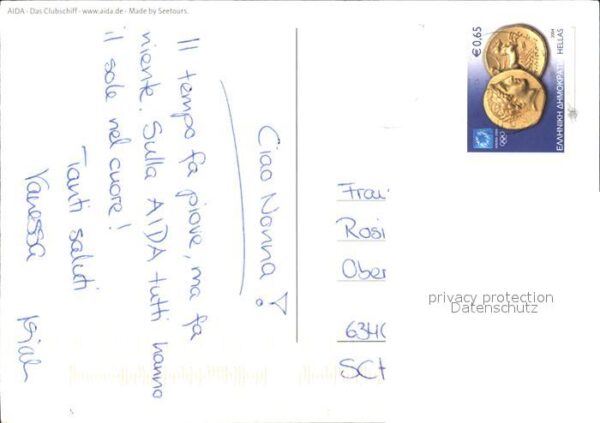 AIDA - Das Clubschiff - www.aida.de - Made by Seetours.
Ciao Nonna!
Il tempo fa piove, ma fa
niente. Sulla AIDA tutti hanno
il sole nel cuore!
Tanti saluti
Vanessa
Frau
Rosi
Ober
6340
SCH
€0,65
2004
ΕΛΛΗΝΙΚΗ ΔΗΜΟΚΡΑΤΙΑ HELLAS
privacy protection
Datenschutz